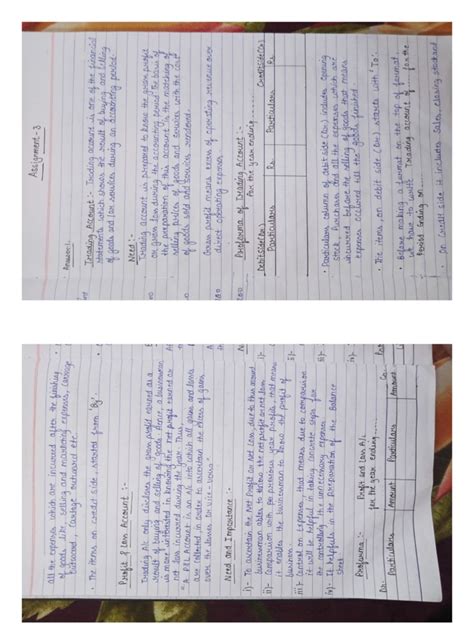 Assignment - 3
Answer 1.
Trading Account :- Trading account is one of the financial
statements which shows the result of buying and selling
of goods and/or services during an accounting period.
Need :-
Trading account is prepared to know the gross profit
or gross loss during the accounting period. The basis of
the preparation of this account is the matching of
selling prices of goods and services with the cost
of goods sold and services
Gross profit means excess of operating revenue over
direct operating expenses.
Proforma of Trading Account :-
for the year ending
Debit Side (Dr.) Credit Side (Cr.)
Particulars Rs. Particulars Rs.
• Particulars column of debit side (Dr.) includes opening
stock, Purchases and all the expenses which are
incurred before the selling of goods that means
expenses occurred till the goods finished.
• The items on debit side (Dr) starts with 'To'.
• Before making a format on the top of format
we have to write Trading account of for the
Period Ending on
• On Credit side it includes Sales, closing stock and
all the expenses which are incurred after the finishing
of goods like selling and marketing expenses, carriage
outward etc.
• The items on credit side started from 'By'.
Profit & Loss Account :-
Trading A/c only discloses the gross profit earned as a
result of buying and selling of goods. Hence, a businessman
is more interested in knowing the net profit earned or
net loss incurred during the year. Thus
A P&L Account is an A/c into which all gains and losses
are collected in order to ascertain the excess of gains
over the losses or vice-versa
Need and Importance :-
i) To ascertain the Net Profit or Net Loss, due to this
businessman able to know the net profit or net loss.
ii) Comparison with the previous year profits that means
it enables the businessman to know the profit of
business.
iii) Control on expenses, that means due to comparison
it will be helpful in taking concrete steps for
the controlling the unnecessary expenses
iv) It helpful in the preparation of the Balance
Sheet
Proforma :- Profit and Loss A/c
for the year ending
Dr. Cr.
Particulars Amount Particulars Amount